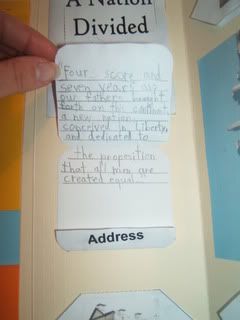 A Nation
Divided
Four score and
seven years ago
our fathers brought
forth on this continent
a new nation
conceived in Liberty,
and dedicated to
the proposition
that all men are
created equal.
Address